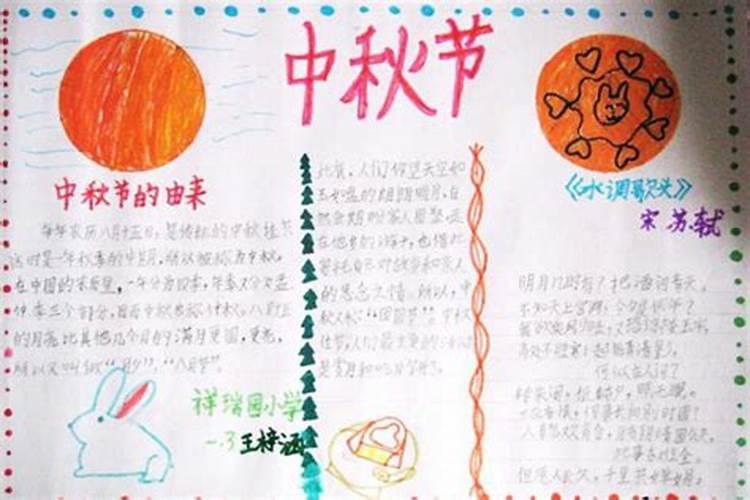 中秋节
中秋节的由来
每年农历八月十五日,是传统的中秋佳节
这时是一年秋季的中期,所以被称为中秋。
在中国的农历里,一年分为四季,每季又分为孟
仲季三个部分,因而中秋也称仲秋。八月十五
的月亮比其他几个月的满月更圆,更亮,
所以又叫做“月夕”,“八月节”。
祥瑞园小学
一.3王梓涵
此夜,人们仰望天空如
玉如盘的朗朗明月,自
然会期盼家人团聚。远
在他乡的游子,也借此
寄托自己对故乡和亲人
的思念之情。所以,中
秋又称“团圆节”。中秋
佳节,人们最主要的活动
是赏月和吃月饼了。
《水调歌头》
宋 苏轼
明月几时有?把酒问青天。
不知天上宫阙,今夕是何年?
何似在人间?
转朱阁,低绮户,照无眠。
不应有恨,何事长向别时圆?
此事古难全。
但愿人长久,千里共婵娟。